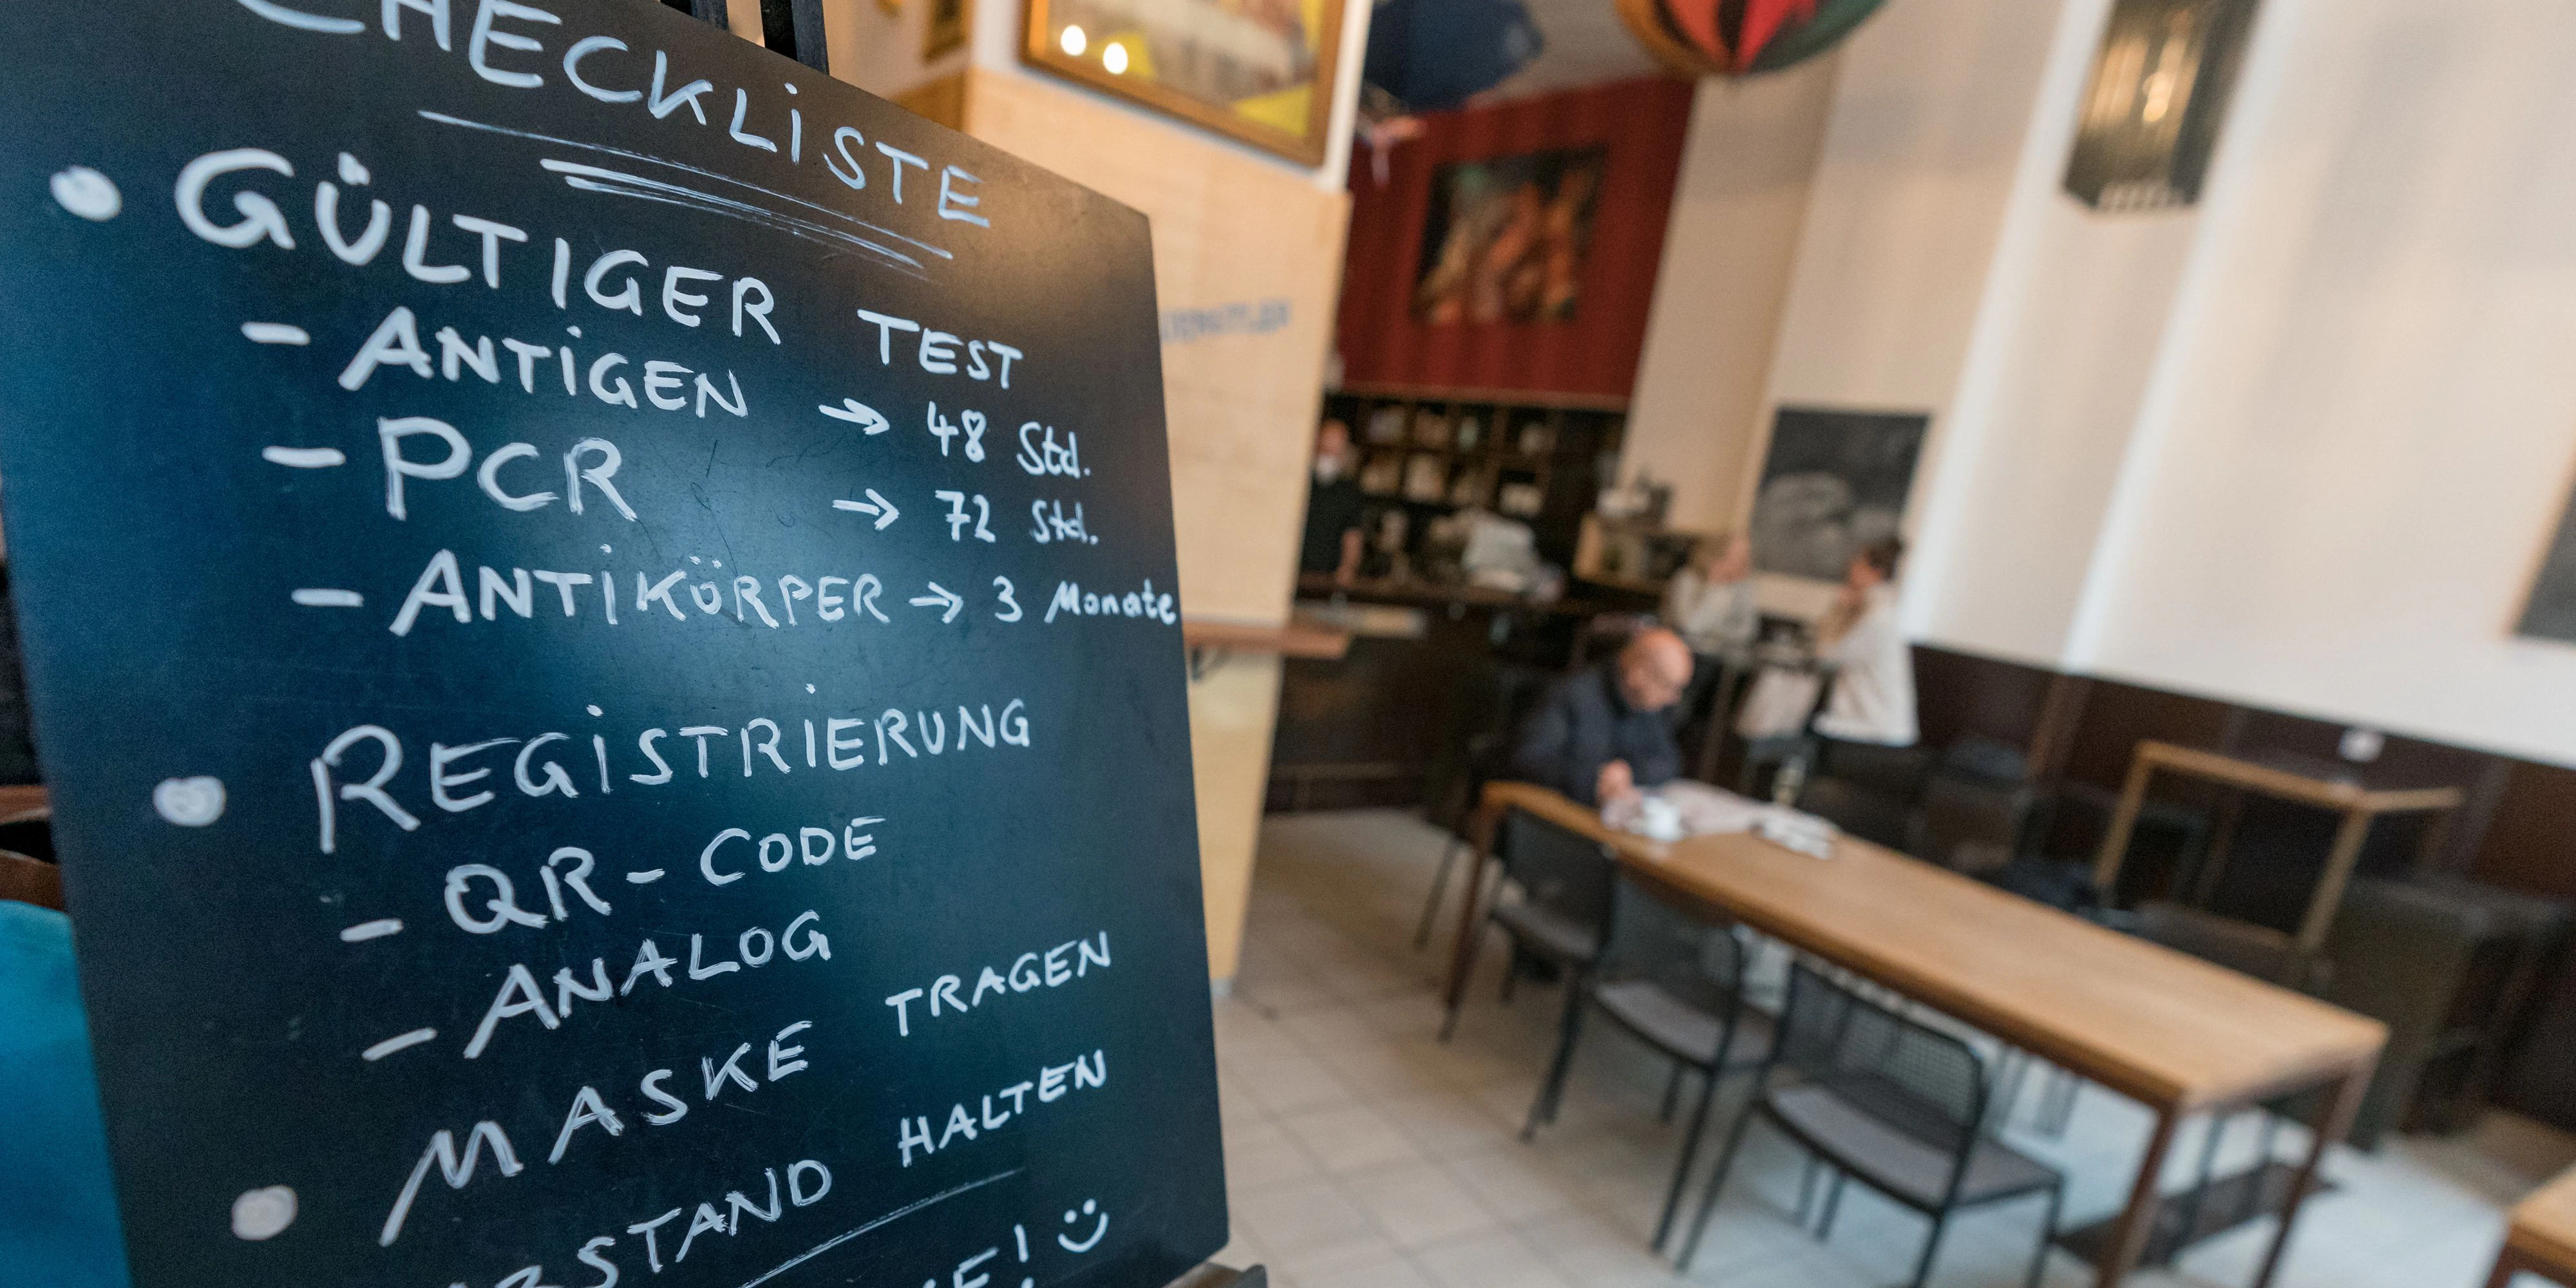 CHECKLISTE
• GÜLTIGER TEST
- ANTIGEN → 48 Std.
- PCR → 72 Std.
- ANTIKÖRPER → 3 Monate
• REGISTRIERUNG
- QR-CODE
- ANALOG
• MASKE TRAGEN
HALTEN